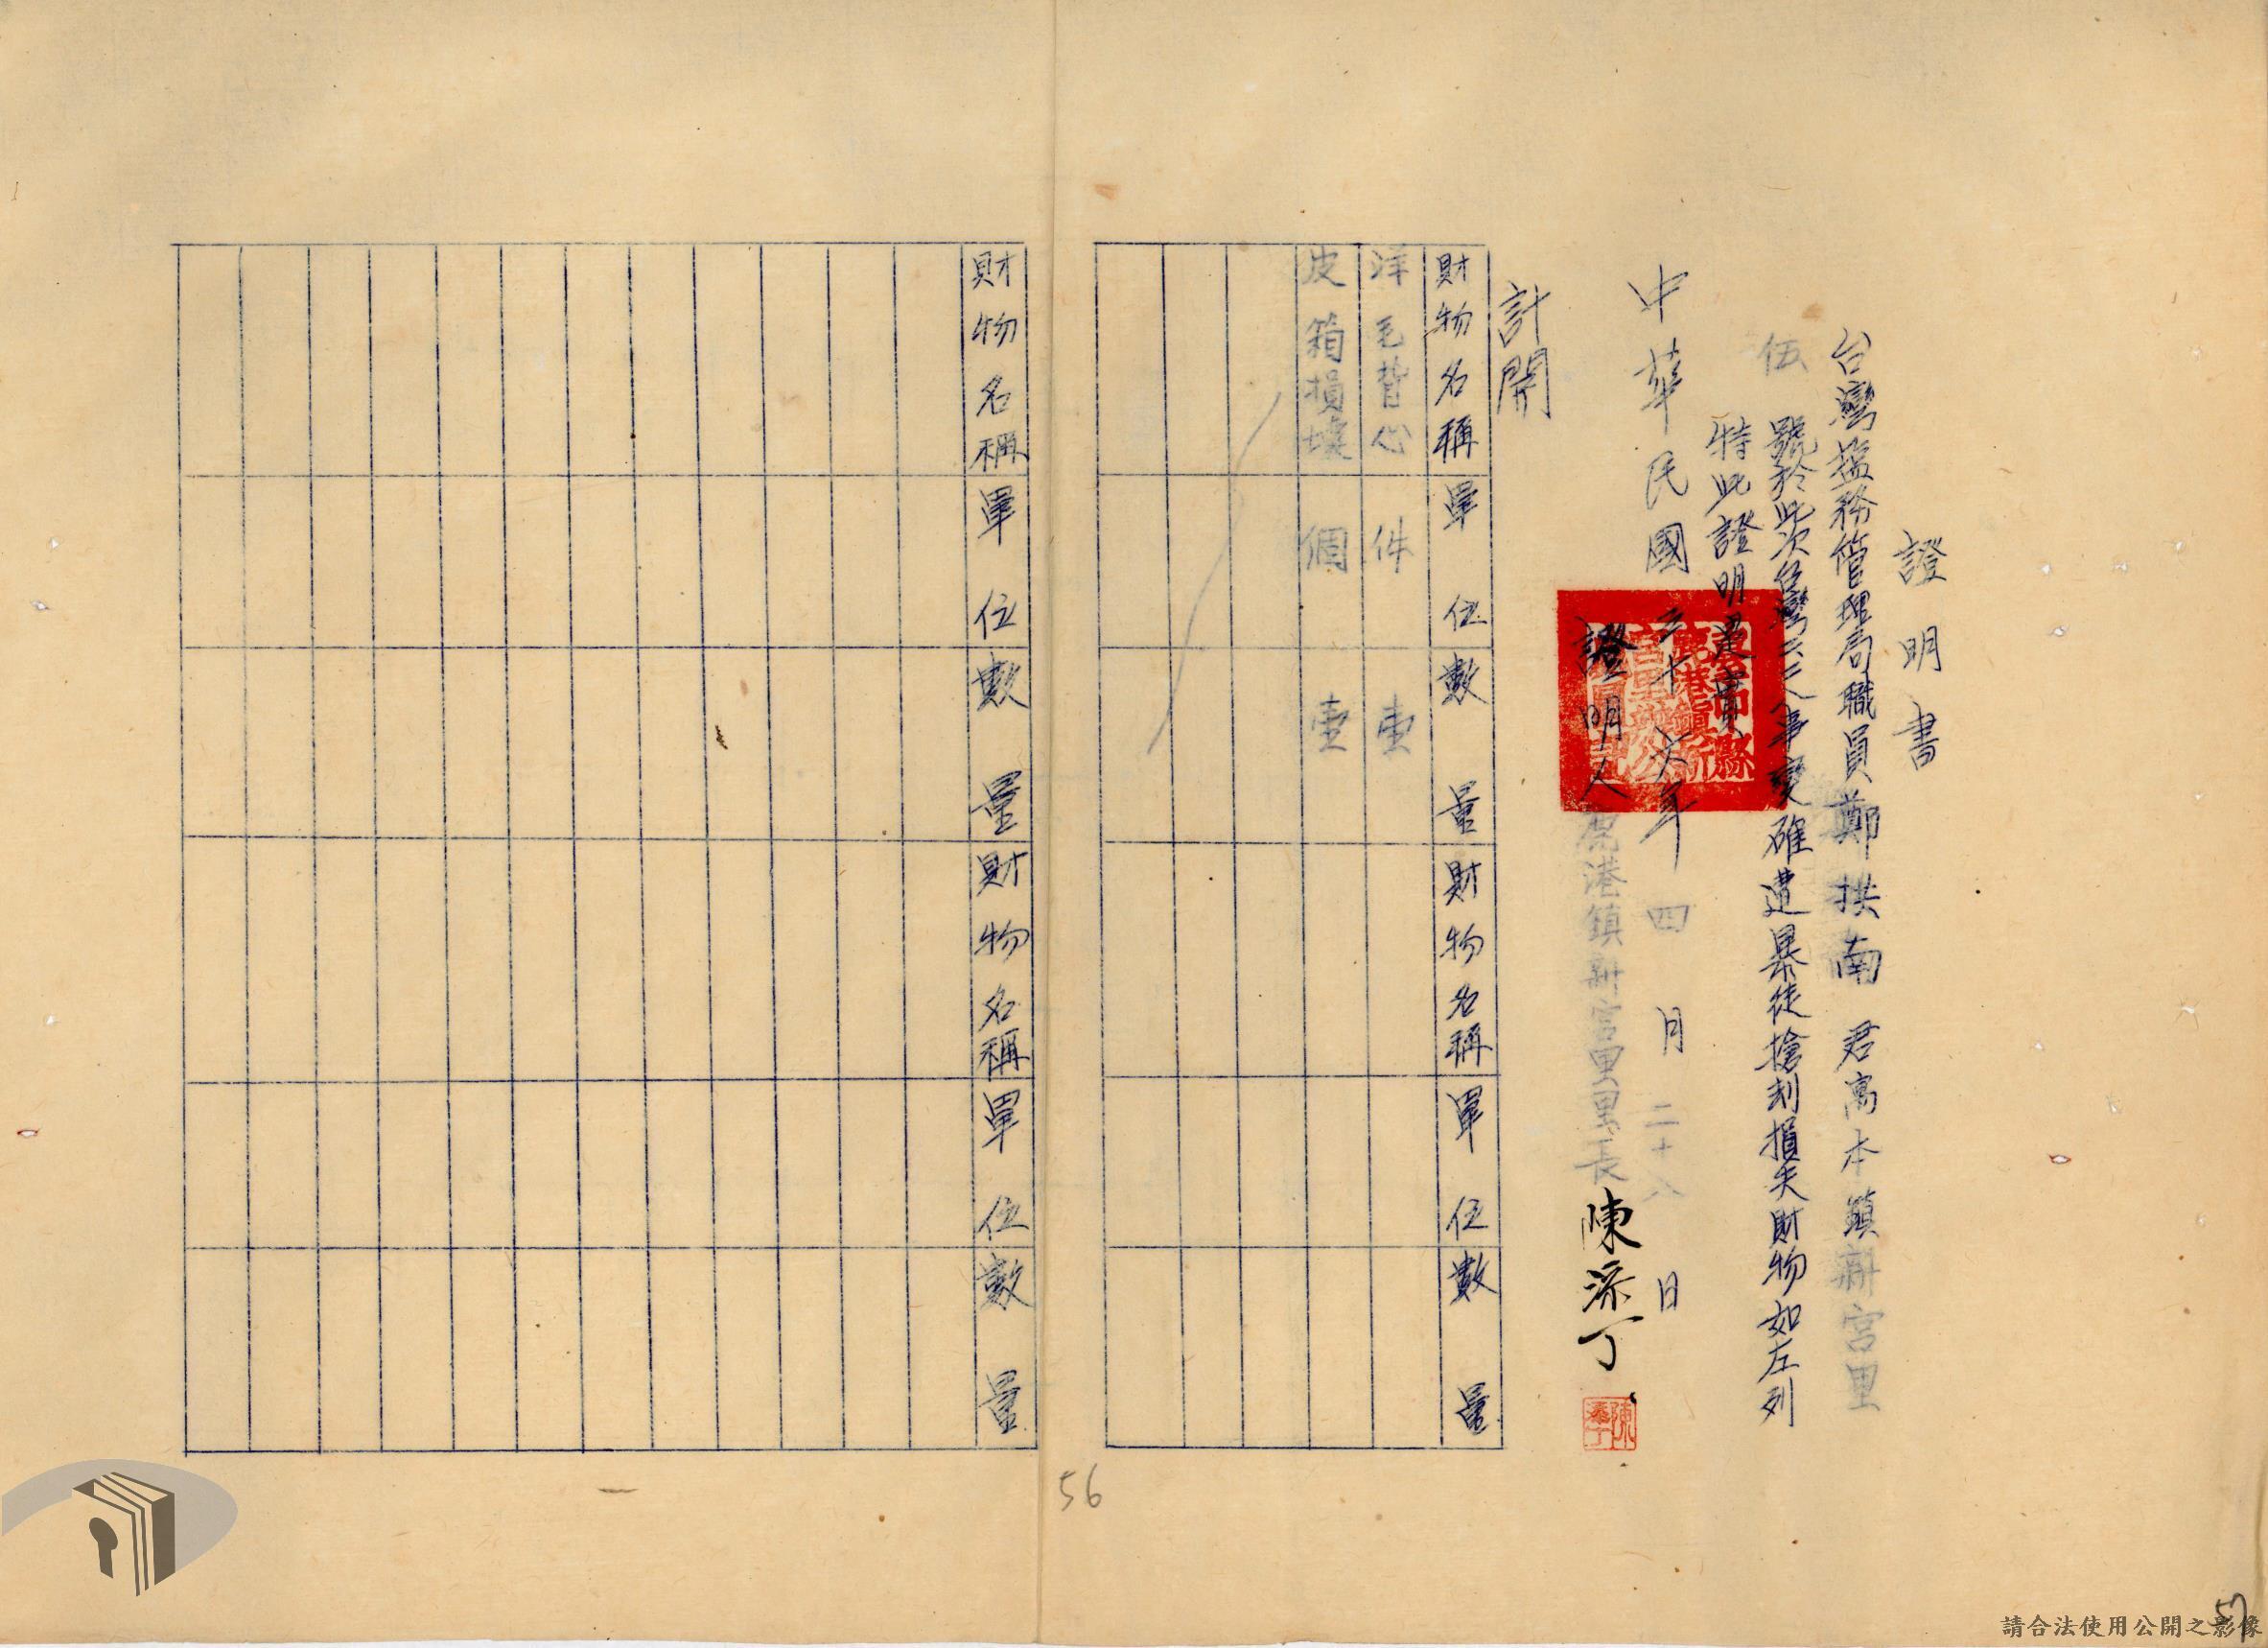 證明書
台灣塩務管理局職員鄭拱南君寓本鎮新宮里
伍號於此次台灣二二八事變確遭暴徒搶刦損失財物如左列
特此證明是實
中華民國三十六年四月二十八日
證明人鹿港鎮新宮里里長陳添丁
計開
財物名稱 單位 數量 財物名稱 單位 數量
洋毛背心 件 壹
皮箱損壞 個 壹
財物名稱 單位 數量 財物名稱 單位 數量
56
57
請合法使用公開之影像